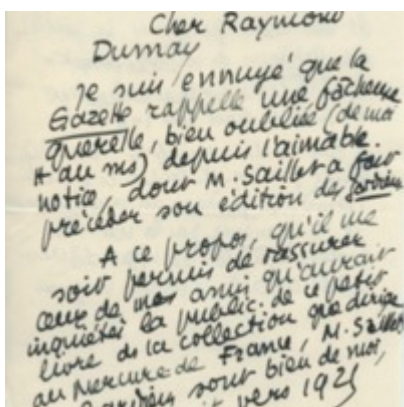 Cher Raymond
Dumay
Je suis ennuyé que la
Gazette rappelle une fâcheuse
querelle, bien oubliée (de moi
depuis l'aimable
notice, dont M. Saillet a fait
précéder son édition des Jardins
A ce propos, qu'il me
soit permis de rassurer
ceux de mes amis qu'aurait
inquiétés la public. de ce petit
livre ds la collection que dirige
au Mercure de France, M. Saillet
sont bien de moi,
vers 1925